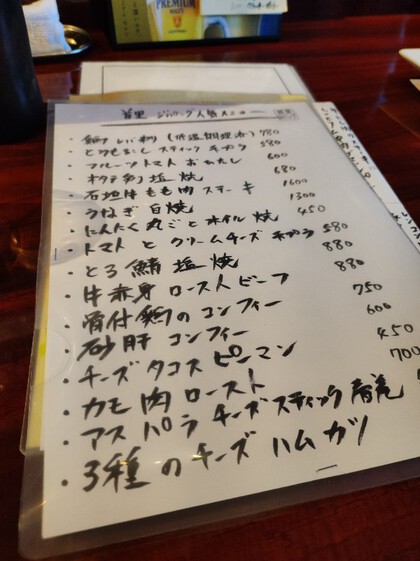 PREMIUM
人気メニュー
鶏レバ刺 (低温調理済) 780
とうもろこし スティック 天ぷら 580
フルーツトマト おひたし 600
ホタテ 塩焼 680
石垣牛もも肉ステーキ 1600
うなぎ 白焼 1300
にんにく丸ごとホイル焼 450
トマトとクリームチーズ 天ぷら 580
とろ鯖 塩焼 880
牛赤身 ローストビーフ 880
骨付鶏のコンフィー 750
砂肝 コンフィー 600
チーズタコスピーマン 450
カモ肉ロースト 700
アスパラチーズスティック春巻
3種のチーズハムカツ